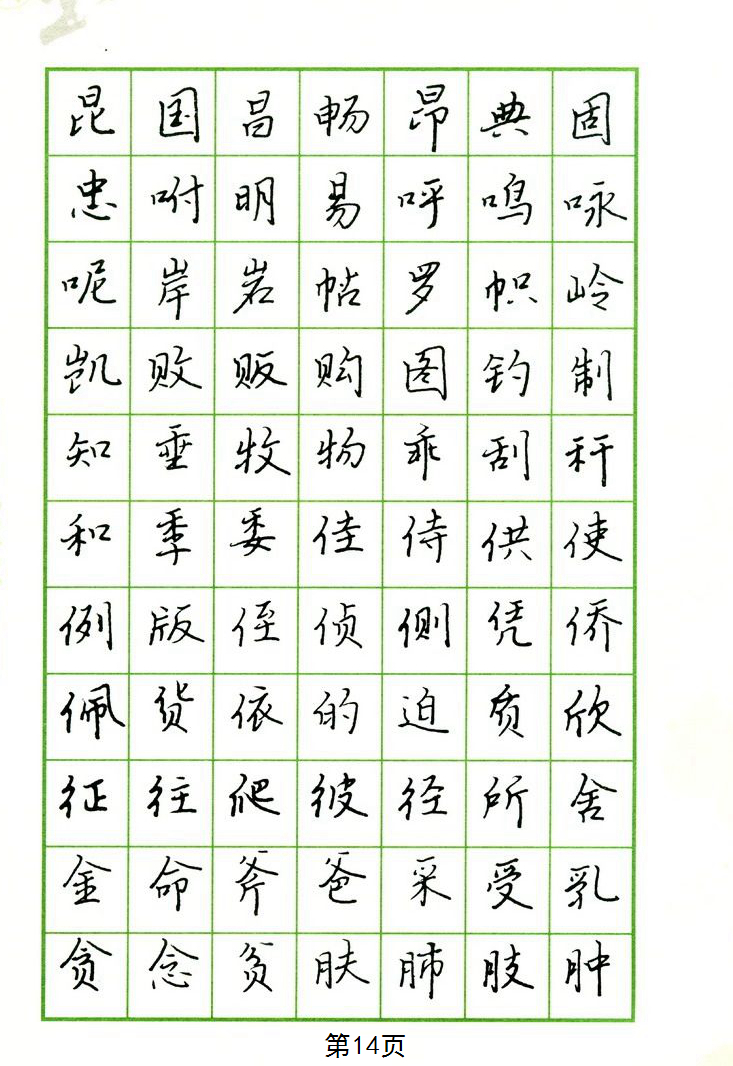 昆国昌畅昂典固
忠咐明易呼鸣咏
呢岸岩帖罗帜岭
凯败贩购图钓制
知垂牧物乖刮秆
和季委佳侍供使
例版侄侦侧凭侨
佩货依的迫质欣
征往爬彼径所舍
金命斧爸采受乳
贪念贫肤肺肢肿
第14页